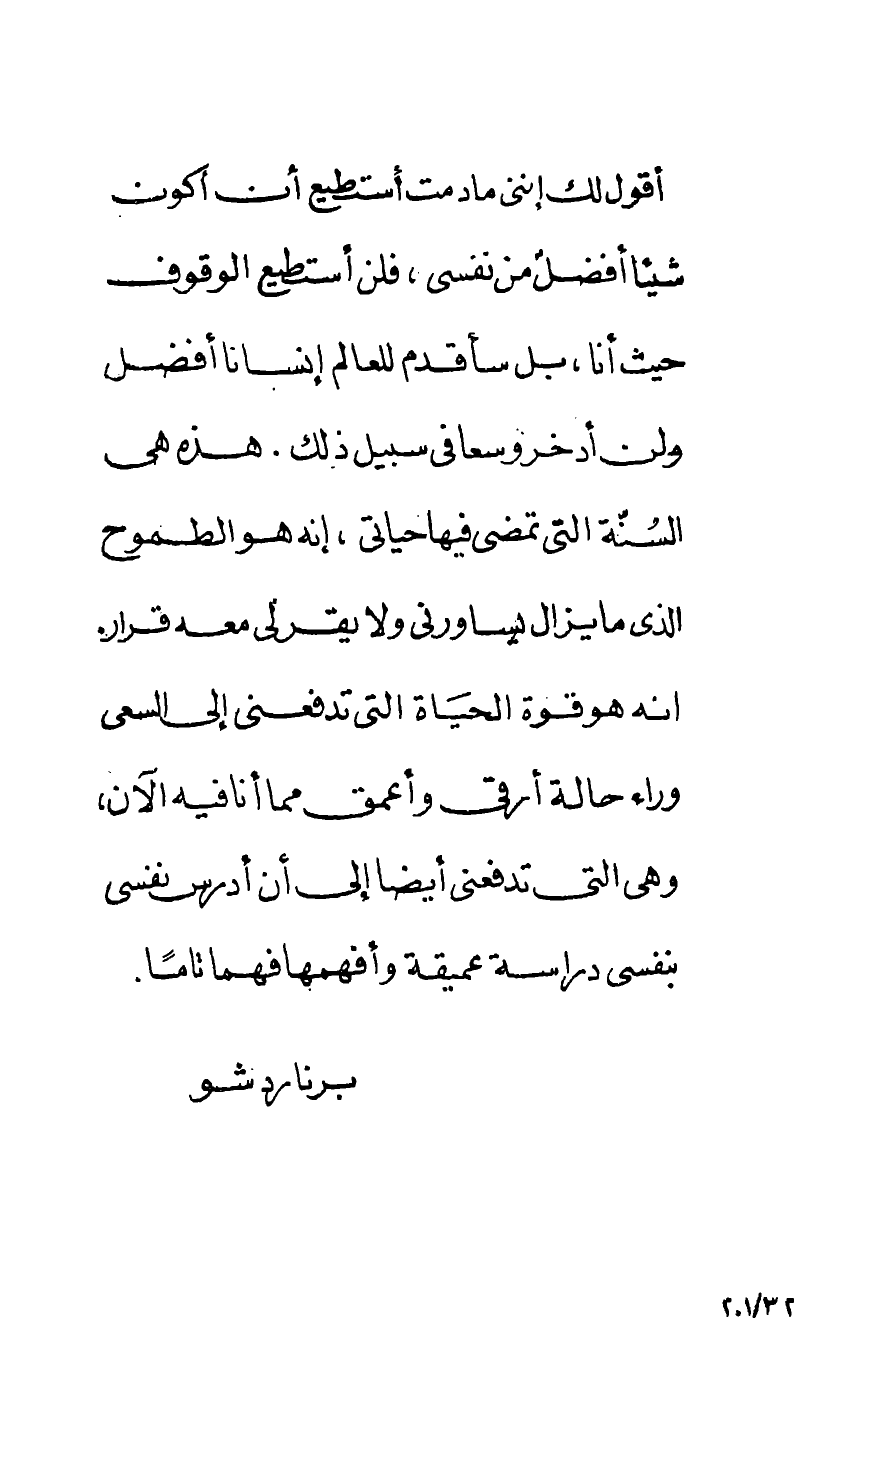 أقول لك إننى مادمت أستطيع أن أكون
شيئا أفضلّ من نفسى ، فلن أستطيع الوقوف
حيث أنا ، بل سأقدم للعالم إنسانا أفضل
ولن أدخر وسعا فى سبيل ذلك . هذه هى
السُنّة التى تمضى فيها حياتى ، إنه هو الطموح
الذى ما يزال يساورنى ولا يقر لى معه قرار.
انه هو قوة الحيَاة التى تدفعنى إلى السعى
وراء حالة أرقى وأعمق مما أنا فيه الآن،
وهى التى تدفعنى أيضا إلى أن أدرس نفسى
بنفسى دراسة عميقة وأفهمها فهما تامًا .
برنارد شو
٢٠١/٣٢